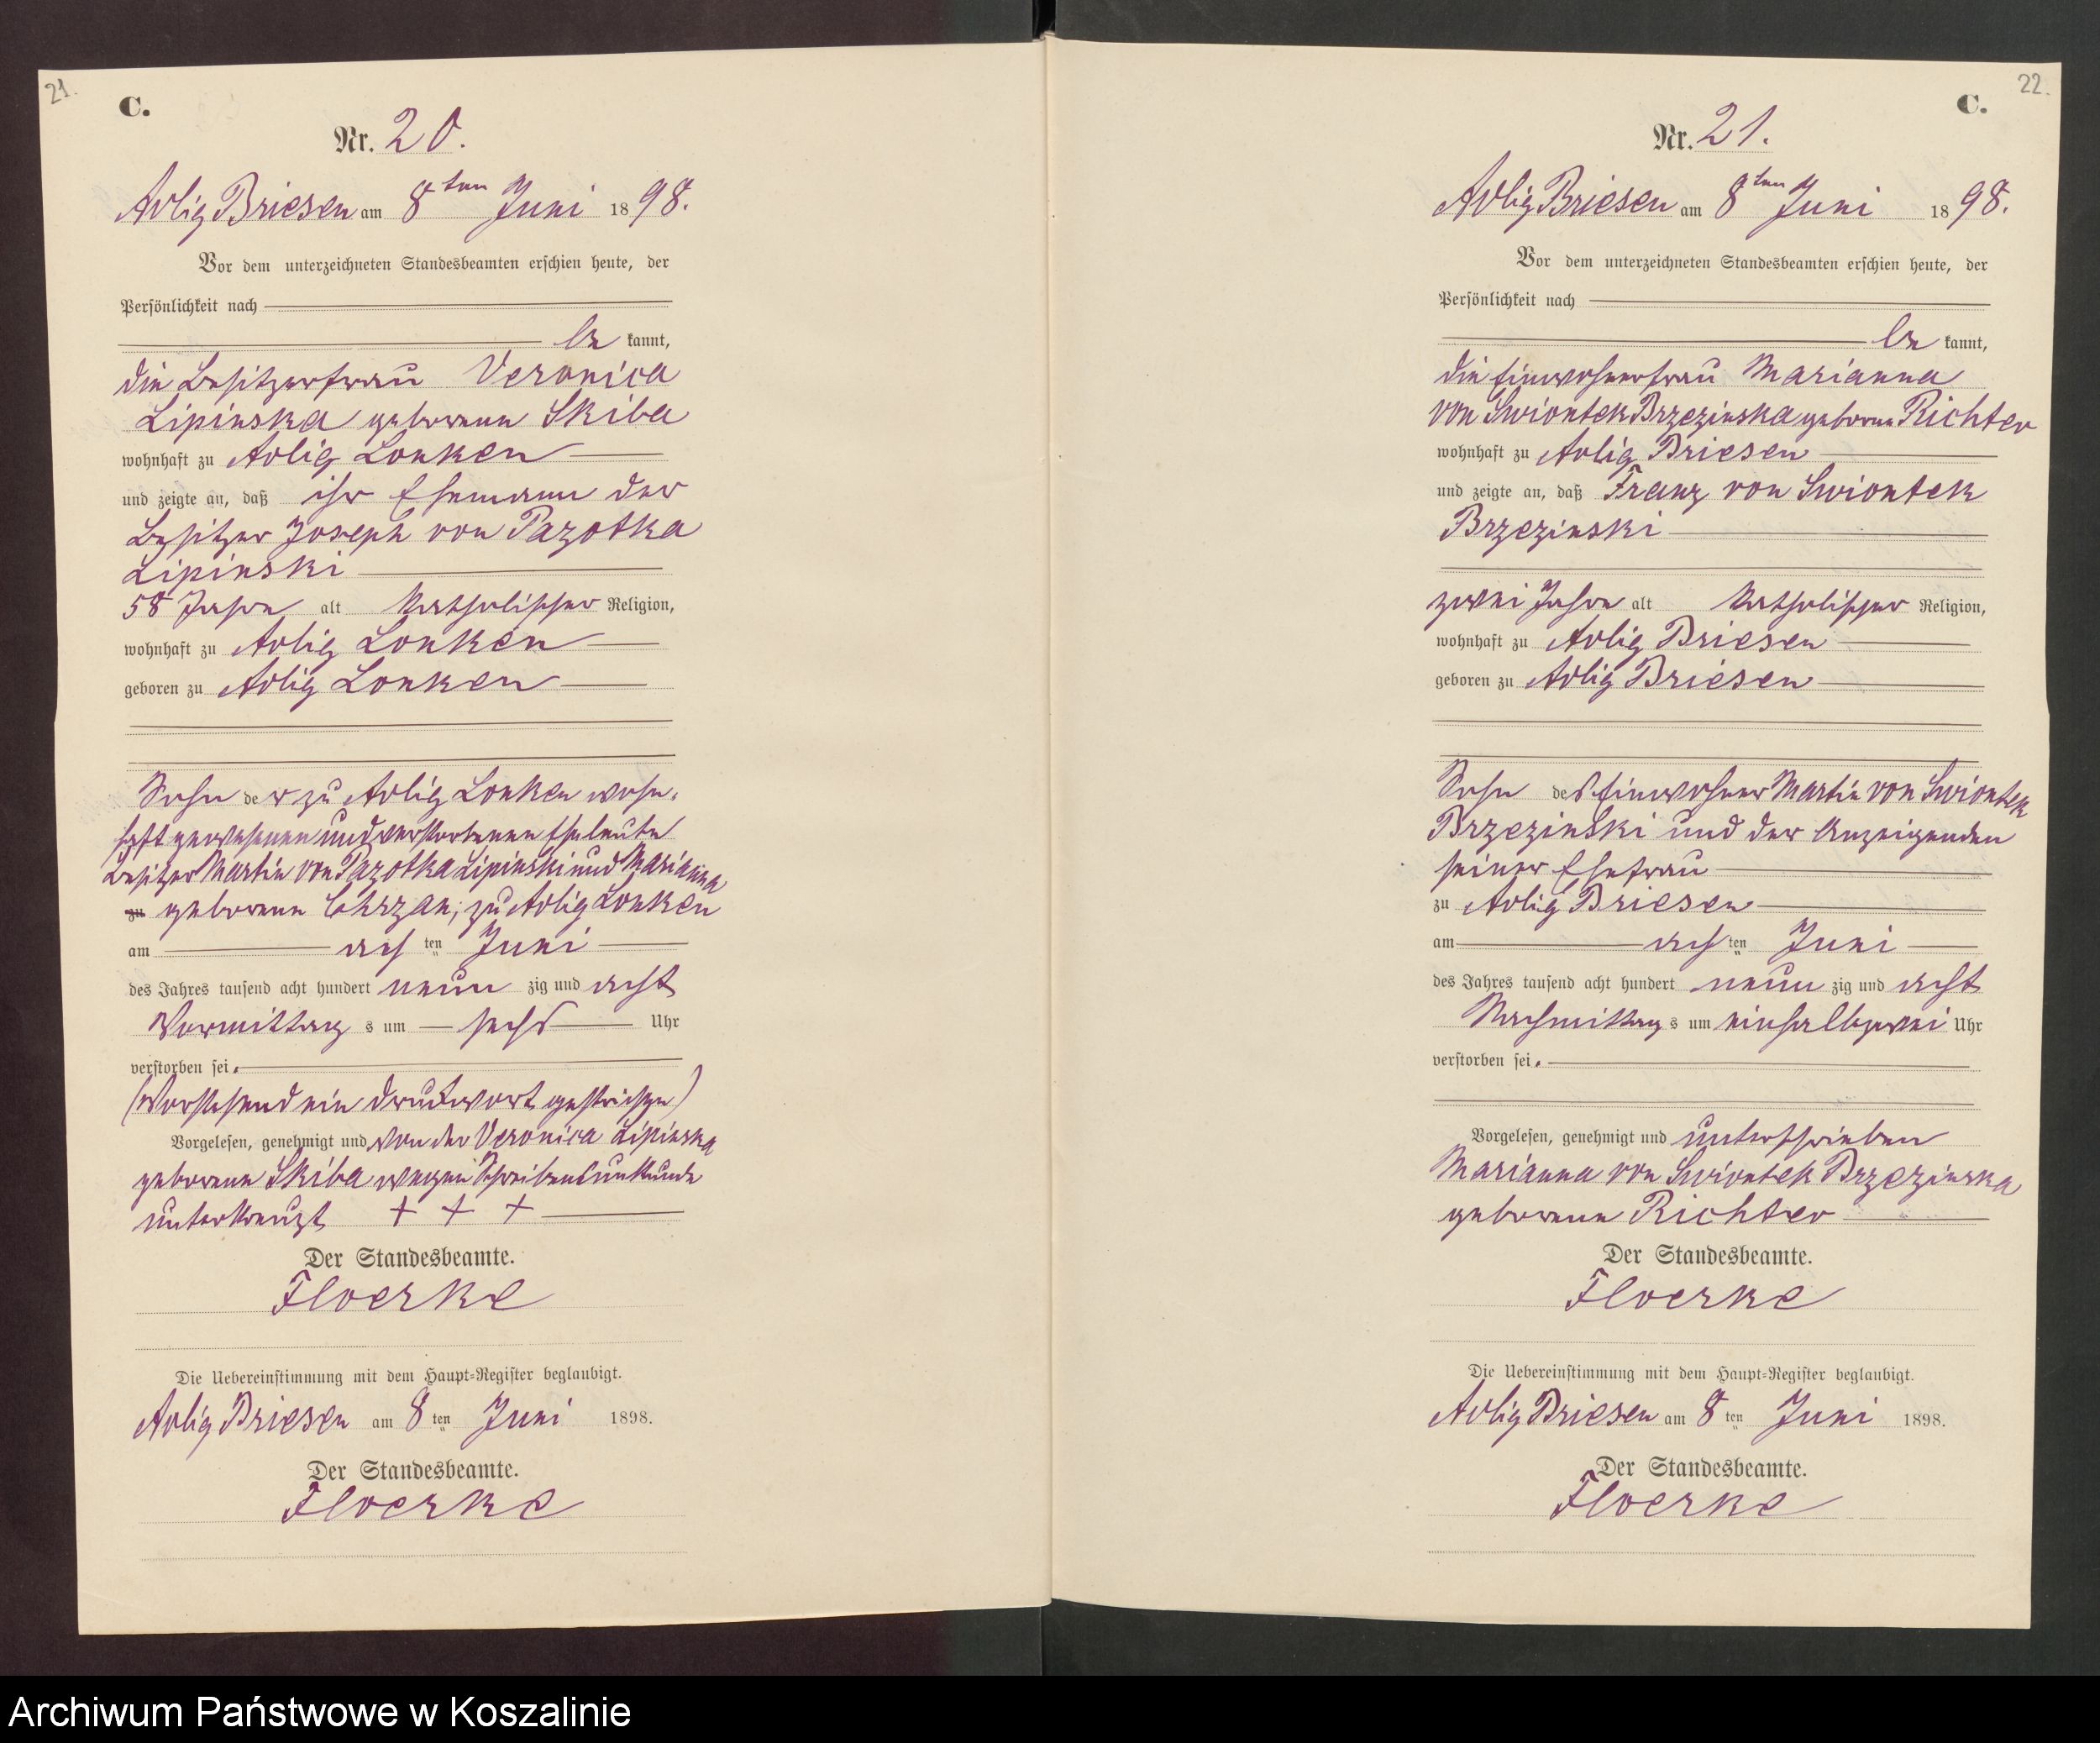 21.
C.
Nr. 20.
Adlig Briesen am 8ten Juni 1898.
Vor dem unterzeichneten Standesbeamten erschien heute, der
Persönlichkeit nach
be kannt,
die Besitzerfrau Veronica
Lipinska geborene Skiba
wohnhaft zu Adlig Lonken
und zeigte an, daß ihr Ehemann der
Besitzer Joseph von Pazotka
Lipinski
58 Jahre alt katholischer Religion,
wohnhaft zu Adlig Lonken
geboren zu Adlig Lonken
Sohn der zu Adlig Lonken wohn-
haft gewesenen und verstorbenen Eheleute
Besitzer Martin von Pazotka Lipinski und Marianna
zu geborene Chrzan, zu Adlig Lonken
am ach ten Juni
des Jahres tausend acht hundert neun zig und acht
Vormittag s um sechs Uhr
verstorben sei.
(Vorstehend ein Druckwort gestrichen)
Vorgelesen, genehmigt und von der Veronica Lipinska
geborene Skiba wegen Schreibensunkunde
unterkreuzt + + +
Der Standesbeamte.
Floerke
Die Uebereinstimmung mit dem Haupt-Register beglaubigt.
Adlig Briesen am 8 ten Juni 1898.
Der Standesbeamte.
Floerke
22.
C.
Nr. 21.
Adlig Briesen am 8ten Juni 1898.
Vor dem unterzeichneten Standesbeamten erschien heute, der
Persönlichkeit nach
be kannt,
die Einwohnerfrau Marianna
von Swiontek Brzezinska geborene Richter
wohnhaft zu Adlig Briesen
und zeigte an, daß Franz von Swiontek
Brzezinski
zwei Jahre alt katholischer Religion,
wohnhaft zu Adlig Briesen
geboren zu Adlig Briesen
Sohn des Einwohner Martin von Swiontek
Brzezinski und der Anzeigenden
seiner Ehefrau
zu Adlig Briesen
am ach ten Juni
des Jahres tausend acht hundert neun zig und acht
Nachmittag s um einhalbzwei Uhr
verstorben sei.
Vorgelesen, genehmigt und unterschrieben
Marianna von Swiontek Brzezinska
geborene Richter
Der Standesbeamte.
Floerke
Die Uebereinstimmung mit dem Haupt-Register beglaubigt.
Adlig Briesen am 8 ten Juni 1898.
Der Standesbeamte.
Floerke
Archiwum Państwowe w Koszalinie